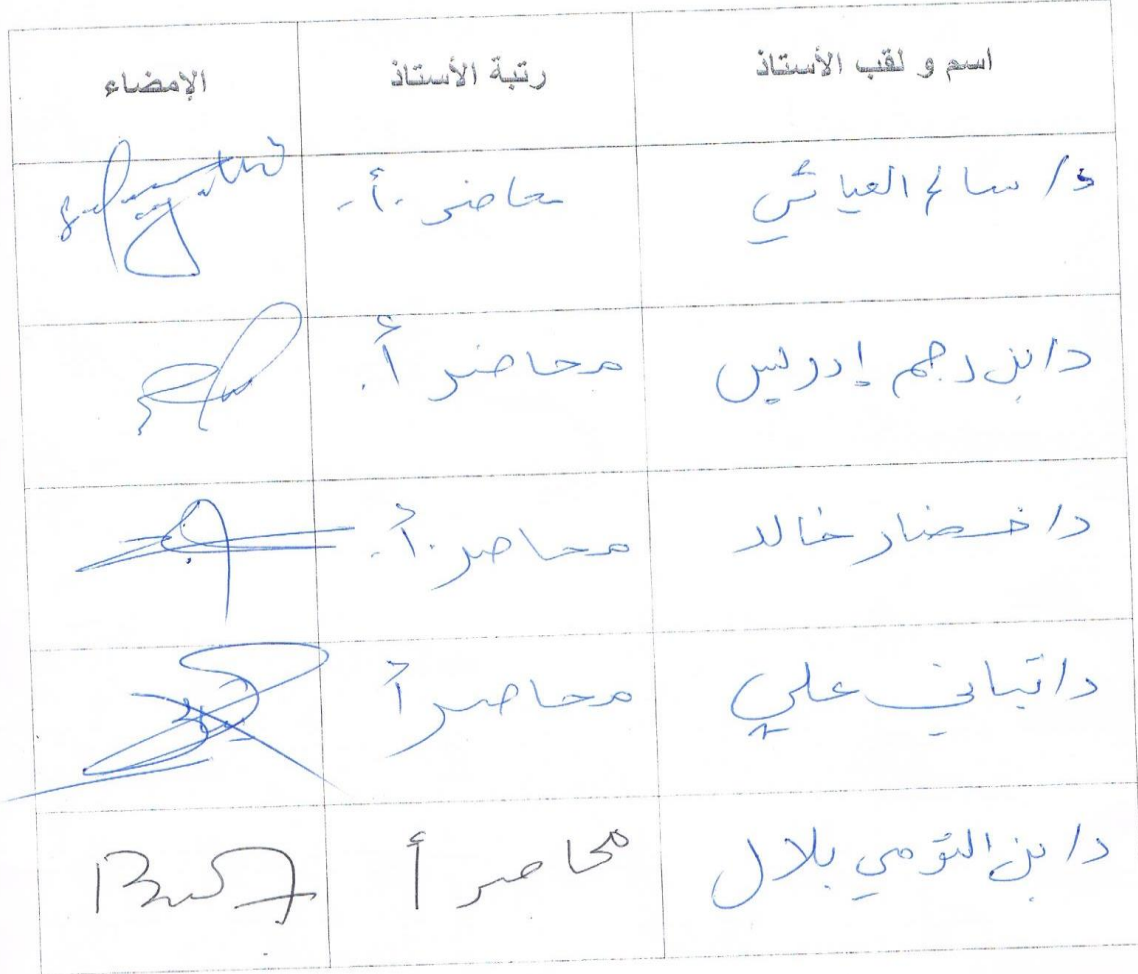 اسم و لقب الأستاذ رتبة الأستاذ الإمضاء
د/ سالم العياشي محاضر .أ.
د/ بن رجم إدريس محاضر أ.
د/ خضار خالد محاضر .أ.
د/ تباني علي محاضر أ
د/ بن التومي بلال محاضر أ